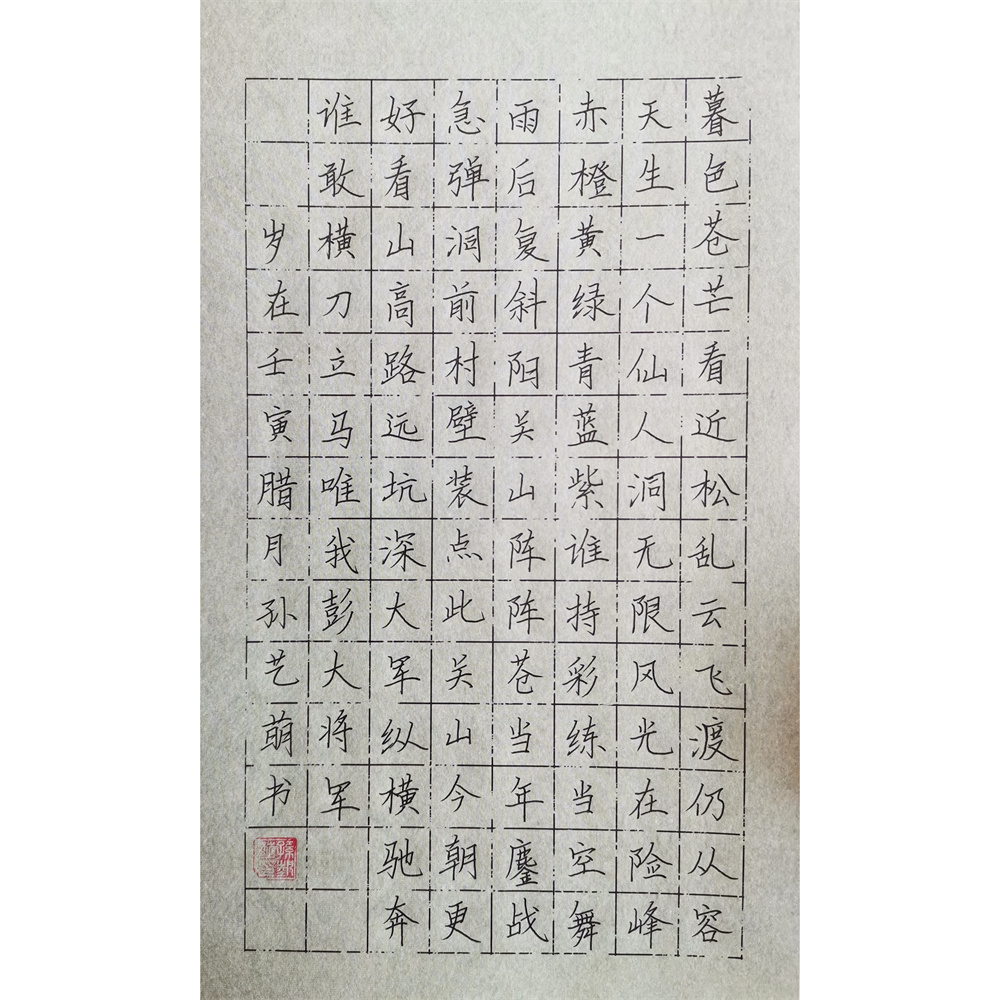 暮色苍芒看近松乱云飞渡仍从容
天生一个仙人洞无限风光在险峰
赤橙黄绿青蓝紫谁持彩练当空舞
雨后复斜阳关山阵阵苍当年鏖战
急弹洞前村壁装点此关山今朝更
好看山高路远坑深大军纵横驰奔
谁敢横刀立马唯我彭大将军
岁在壬寅腊月孙艺萌书